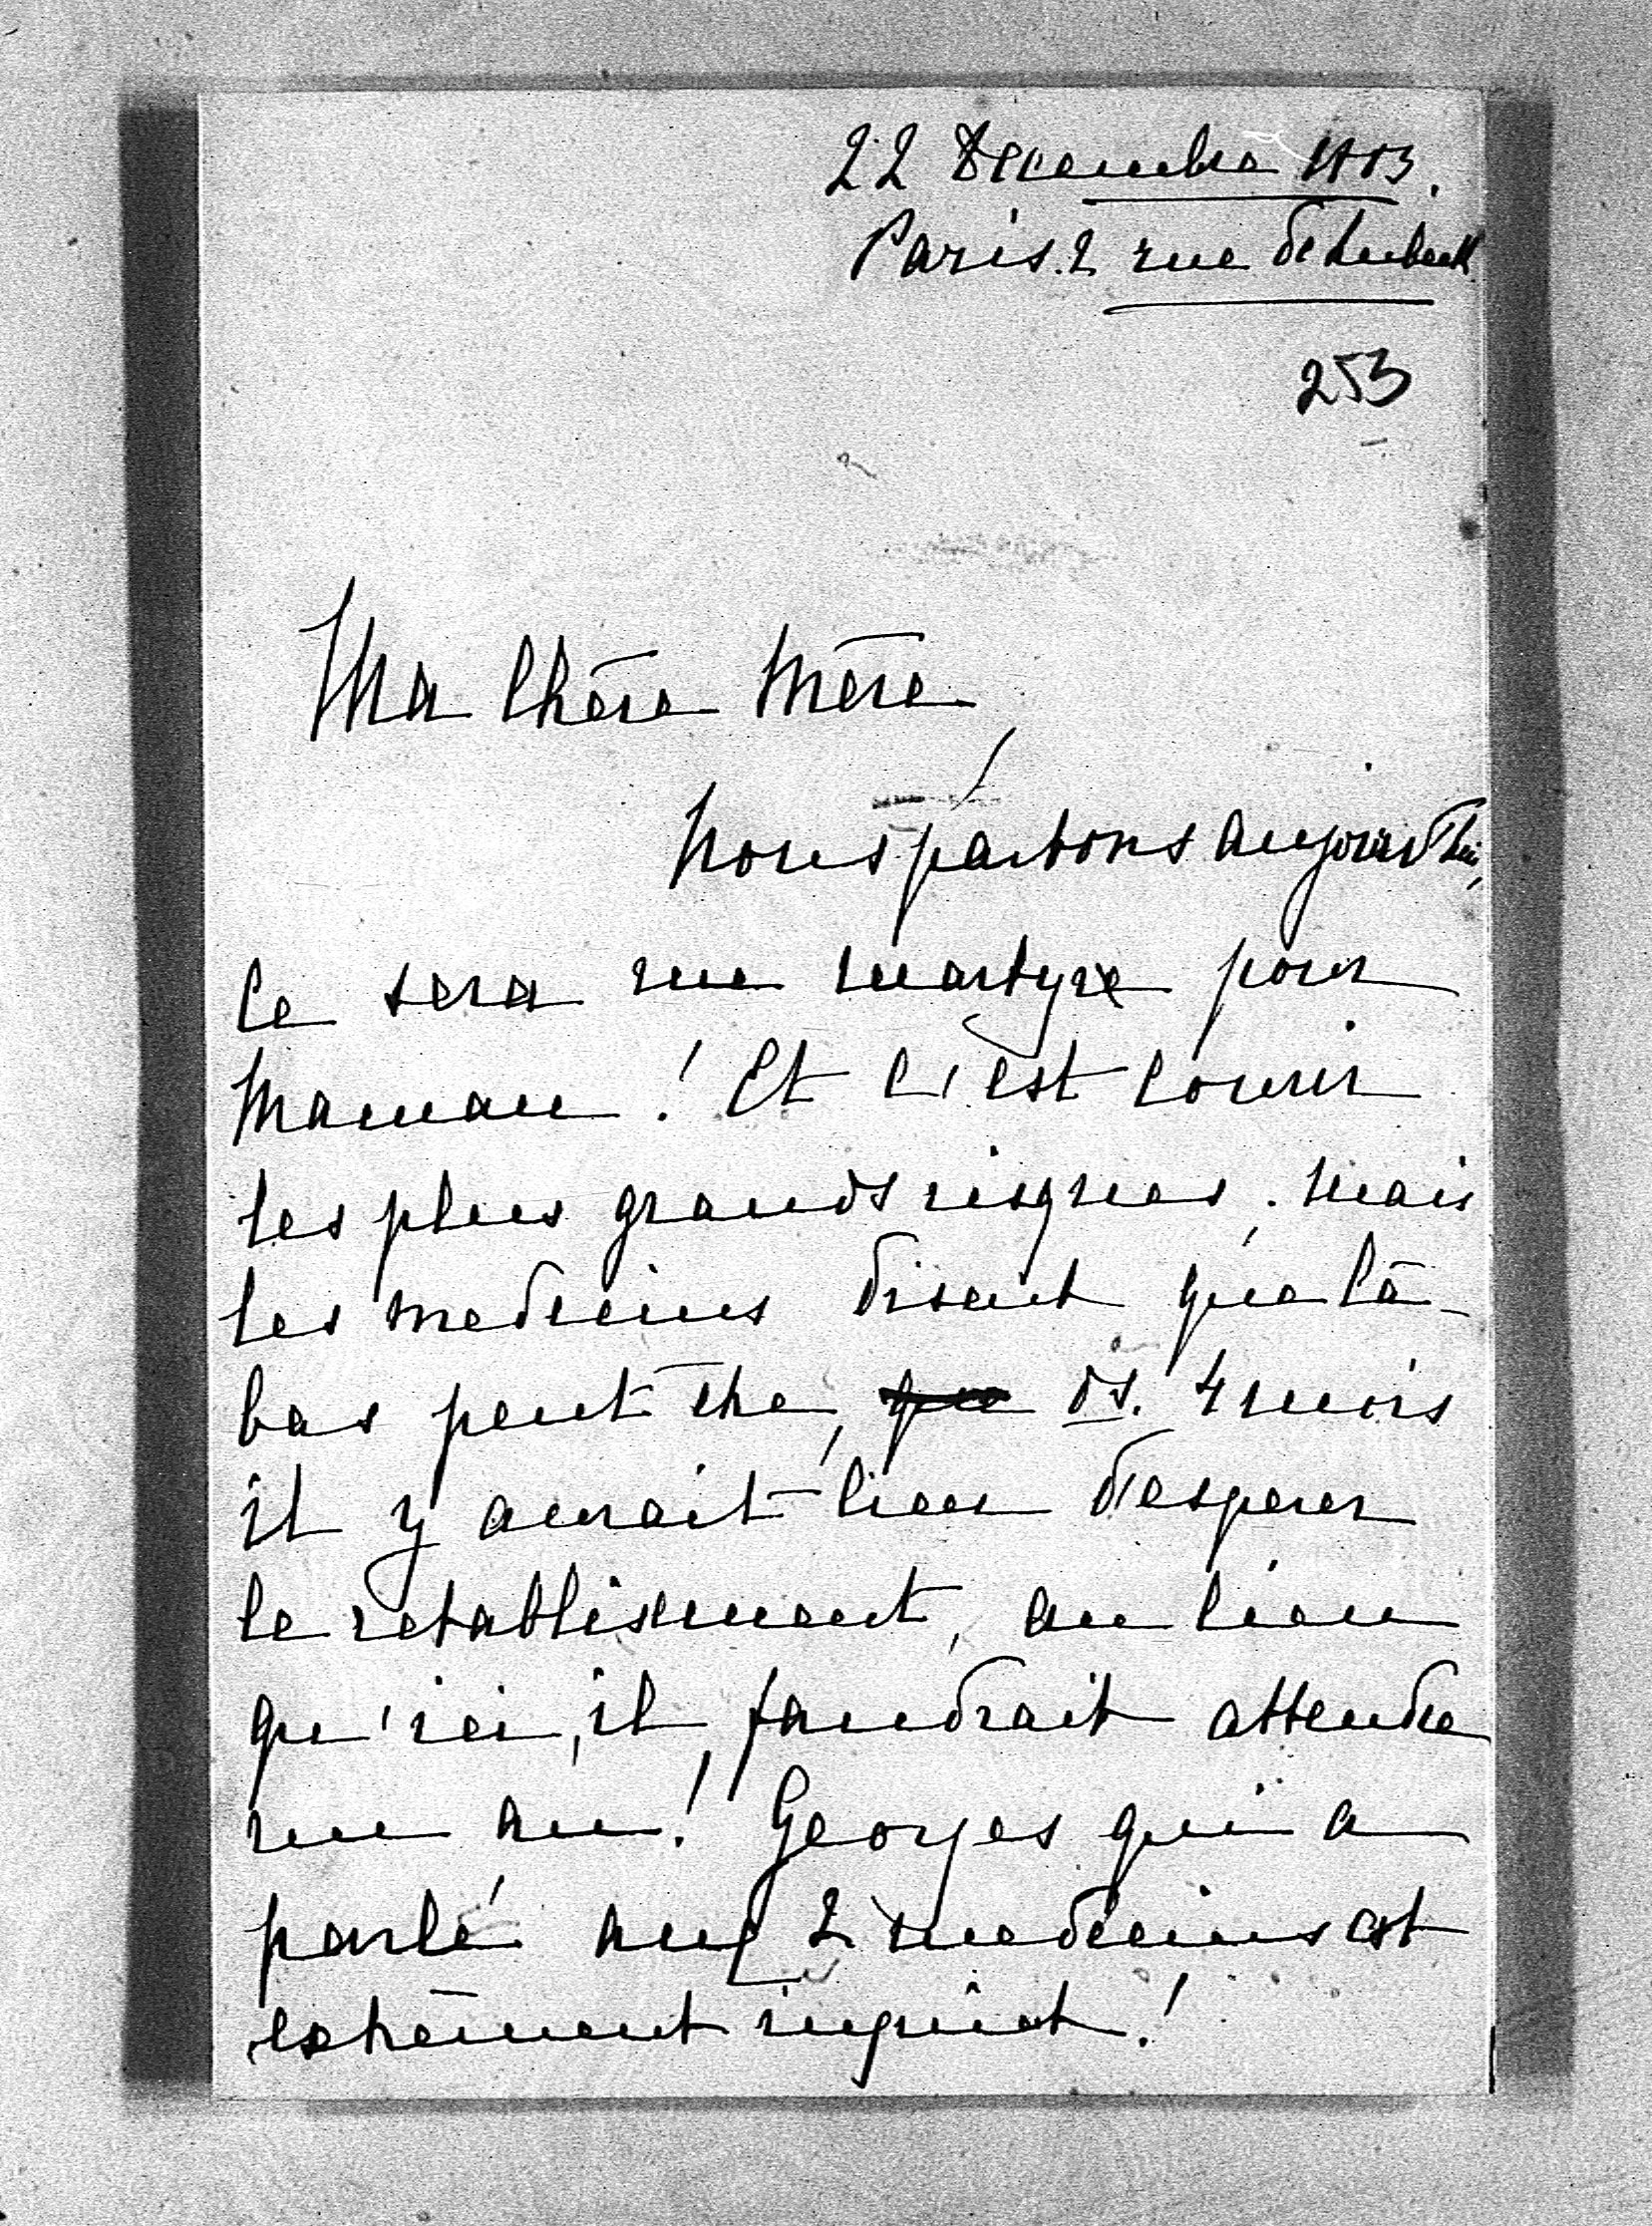 22 Decembre 1883.
Paris. 2 rue de Lubeck
253
Ma Chère Mère
Nous partons aujourd'hui,
Ce sera un martyre pour
Maman ! Et c'est courir
les plus grands risques. Mais
les medecins disent que là-
bas peut être, ds. 4 mois
il y aurait lieu d'esperer
le retablissement, au lieu
qu'ici, il faudrait attendre
un an ! Georges qui a
parlé aux 2 medecins est
extrèment inquiet !